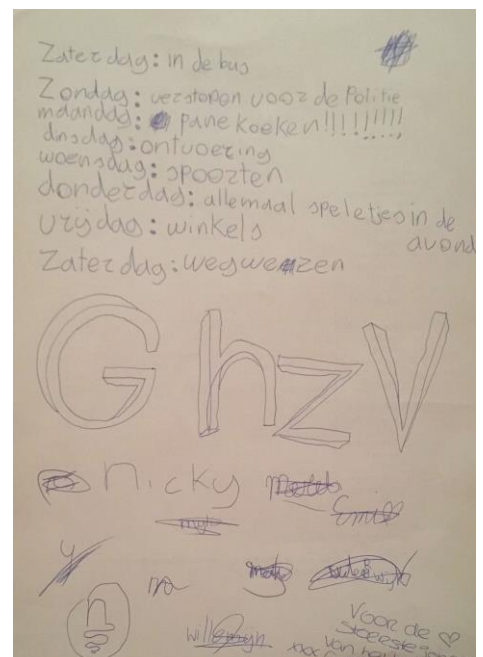 Zaterdag: in de bus
Zondag: verstopen voor de Politie
maandag: pane koeken!!!!!!!!!
dinsdag: ontvoering
woensdag: spoorten
donderdag: allemaal speletjes in de
avond
vrijdag: winkels
Zaterdag: wegwezen
GhzV
nicky
Emiel
y
m
n
willemijn
Voor de ♡
van